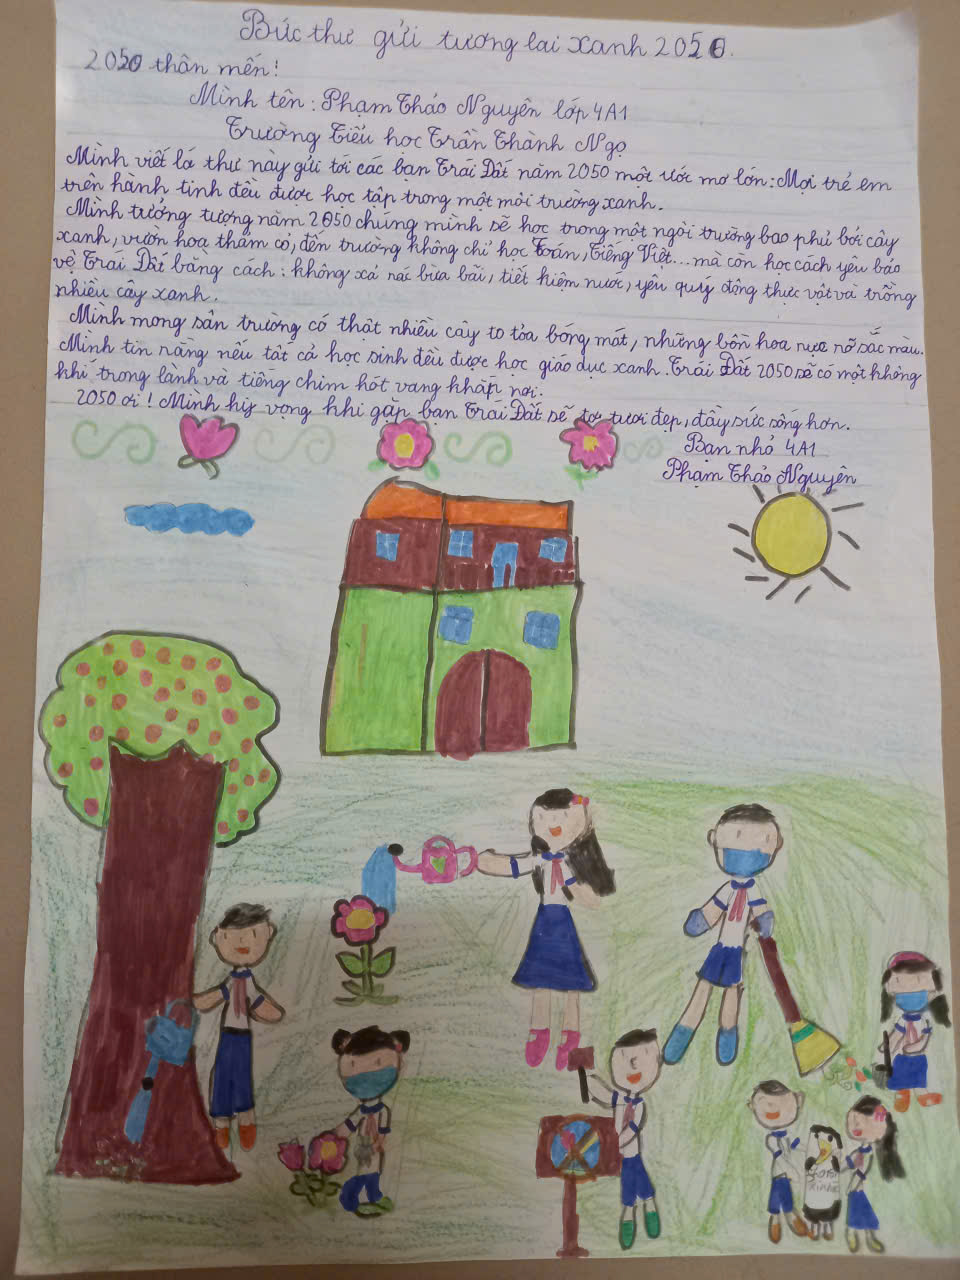 Bức thư gửi tương lai xanh 2050.
2050 thân mến!
Mình tên: Phạm Thảo Nguyên lớp 4A1
Trường Tiểu học Trần Thành Ngọ
Mình viết lá thư này gửi tới các bạn Trái Đất năm 2050 một ước mơ lớn: Mọi trẻ em
trên hành tinh đều được học tập trong một môi trường xanh.
Mình tưởng tượng năm 2050 chúng mình sẽ học trong một ngôi trường bao phủ bởi cây
xanh, vườn hoa thảm cỏ, đến trường không chỉ học Toán, Tiếng Việt... mà còn học cách yêu bảo
vệ Trái Đất bằng cách: không xả rác bừa bãi, tiết kiệm nước, yêu quý động thực vật và trồng
nhiều cây xanh.
Mình mong sân trường có thật nhiều cây to tỏa bóng mát, những bồn hoa rực rỡ sắc màu.
Mình tin rằng nếu tất cả học sinh đều được học giáo dục xanh. Trái Đất 2050 sẽ có một không
khí trong lành và tiếng chim hót vang khắp nơi.
2050 ơi! Mình hy vọng khi gặp bạn Trái Đất sẽ tươi đẹp, đầy sức sống hơn.
Bạn nhỏ 4A1
Phạm Thảo Nguyên